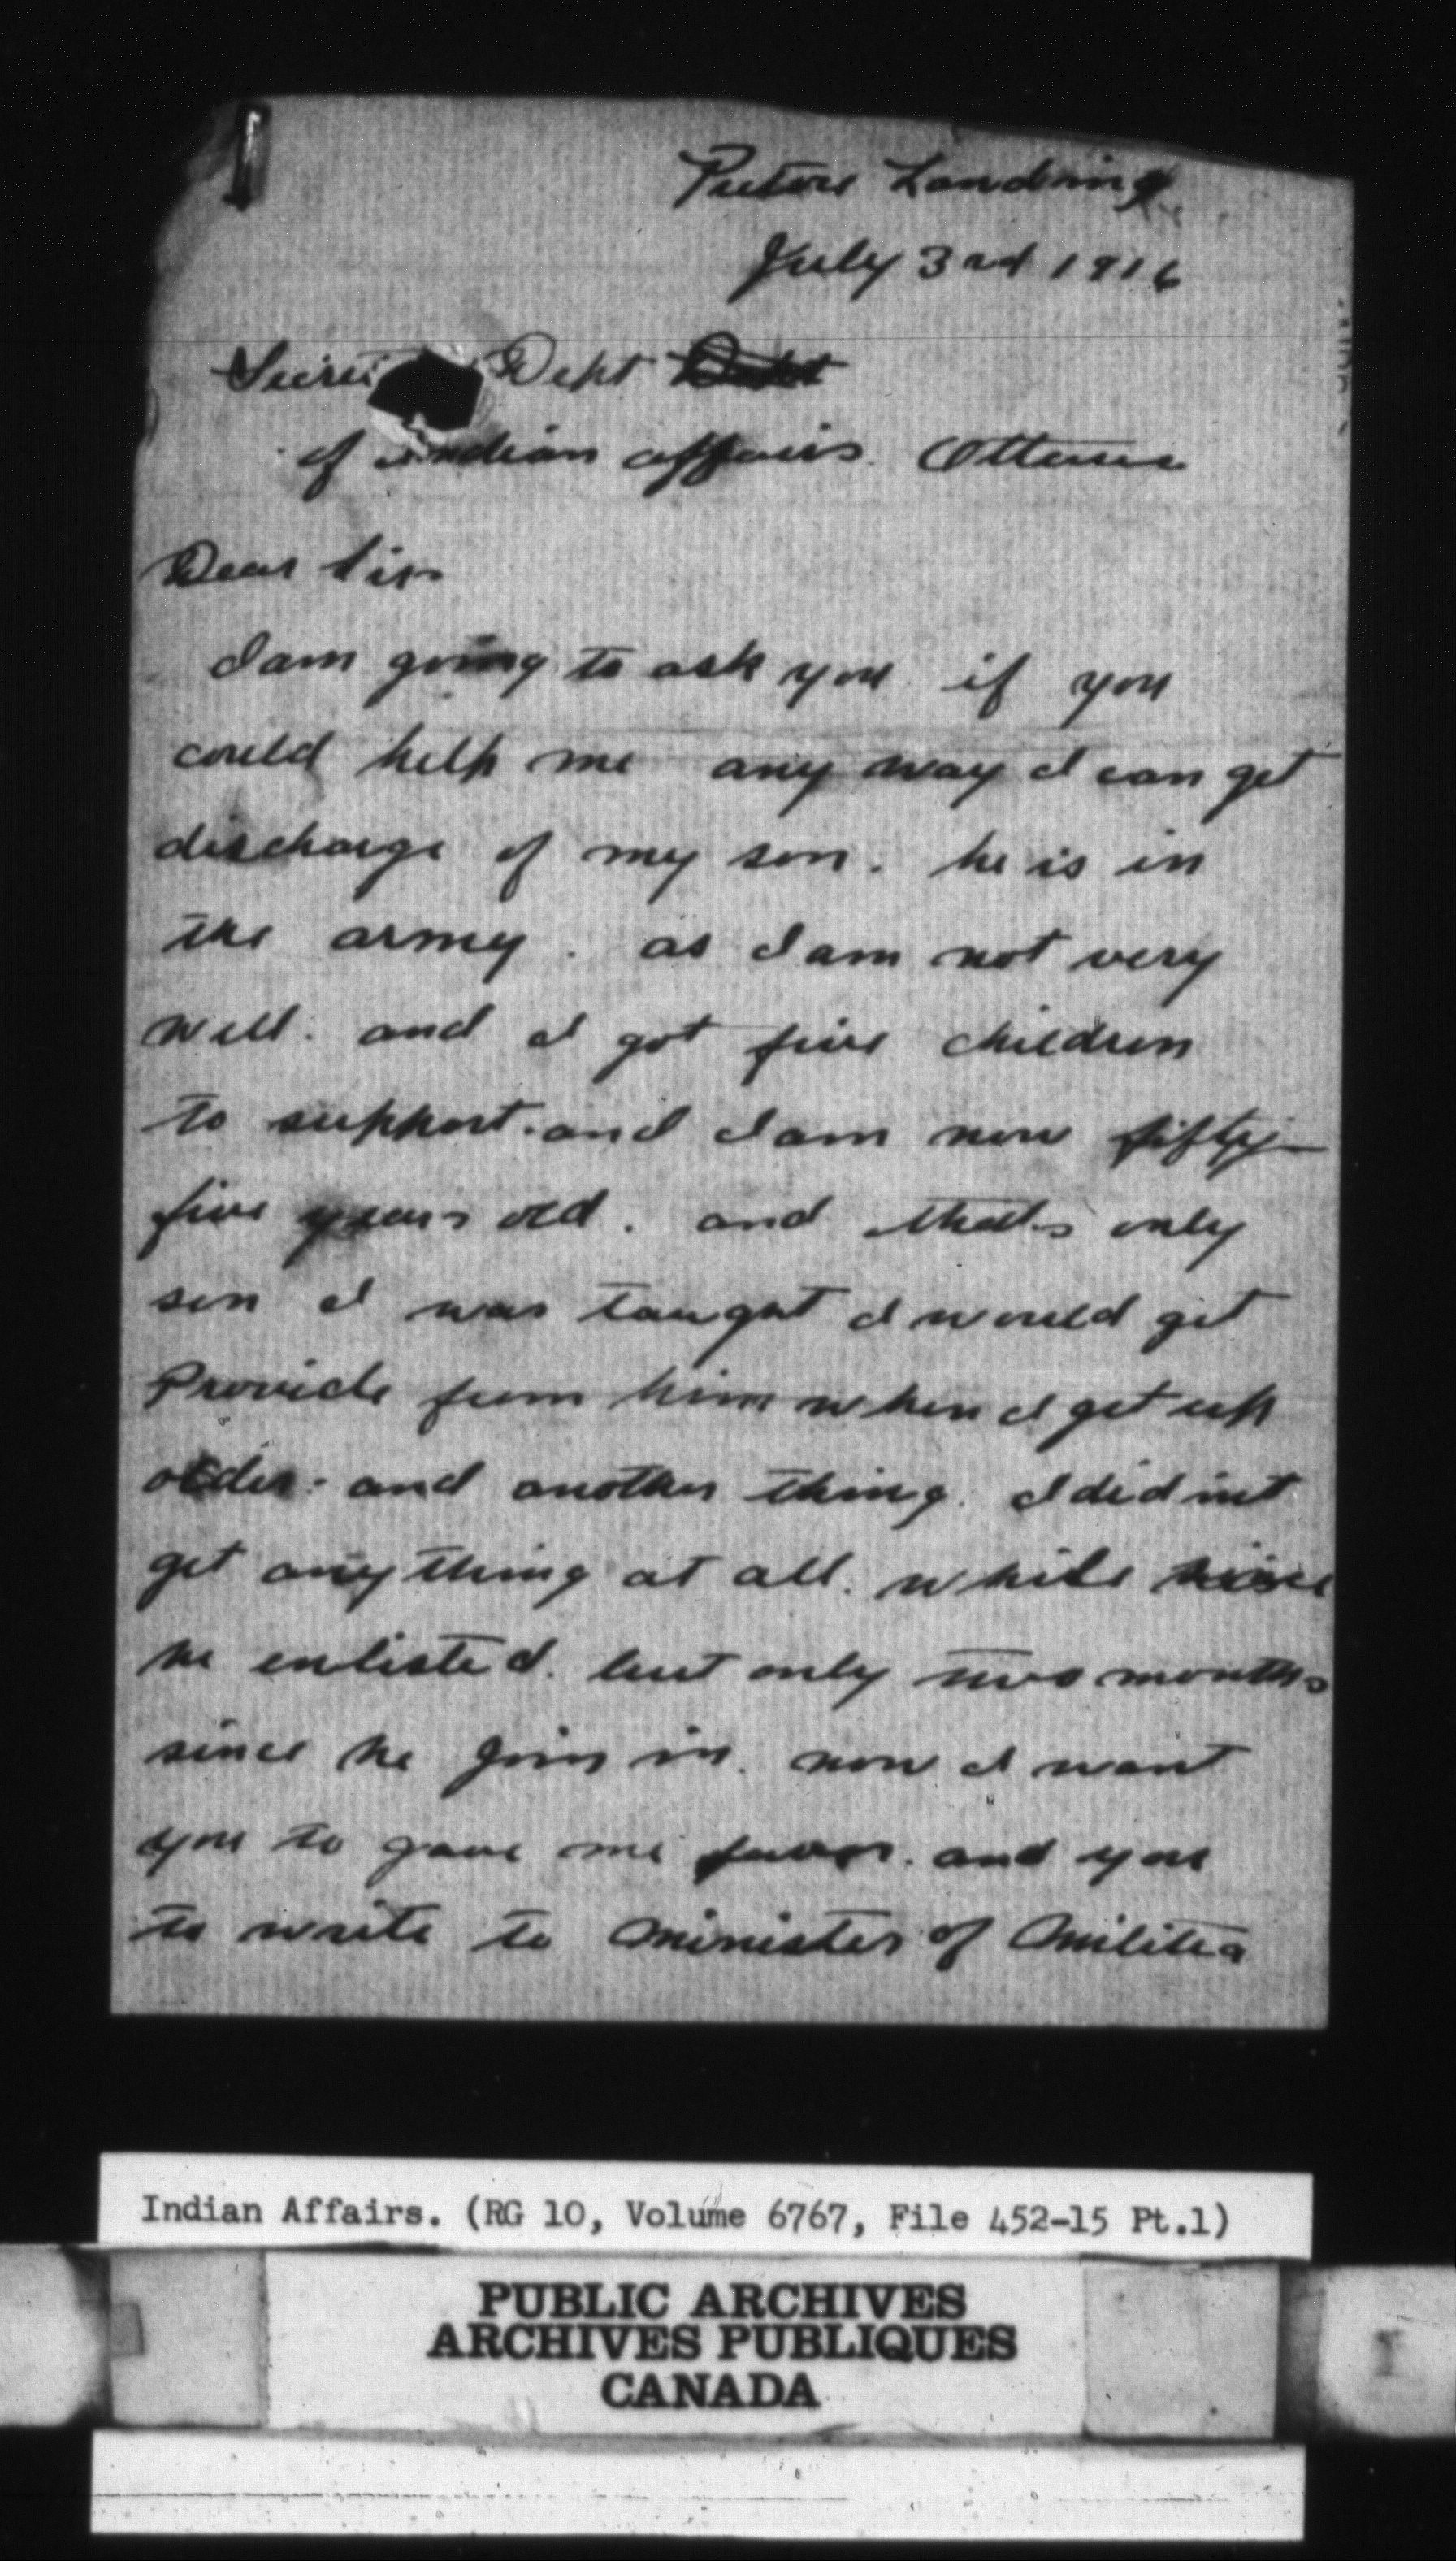 Pictou Landing
July 3rd 1916
Secret Dept
of Indian affairs. Ottawa
Dear Sir
I am going to ask you if you
could help me any way I can get
discharge of my son. he is in
the army. as I am not very
well. and I got five children
to support. and I am now fifty
five years old. and thats only
son I was taught I would get
Provide from him when I get up
older. and another thing. I did not
get any thing at all. while
he enlisted. but only two months
since he join in. now I want
you to gave me favor. and you
to write to Minister of Militia
Indian Affairs. (RG 10, Volume 6767, File 452-15 Pt.1)
PUBLIC ARCHIVES
ARCHIVES PUBLIQUES
CANADA